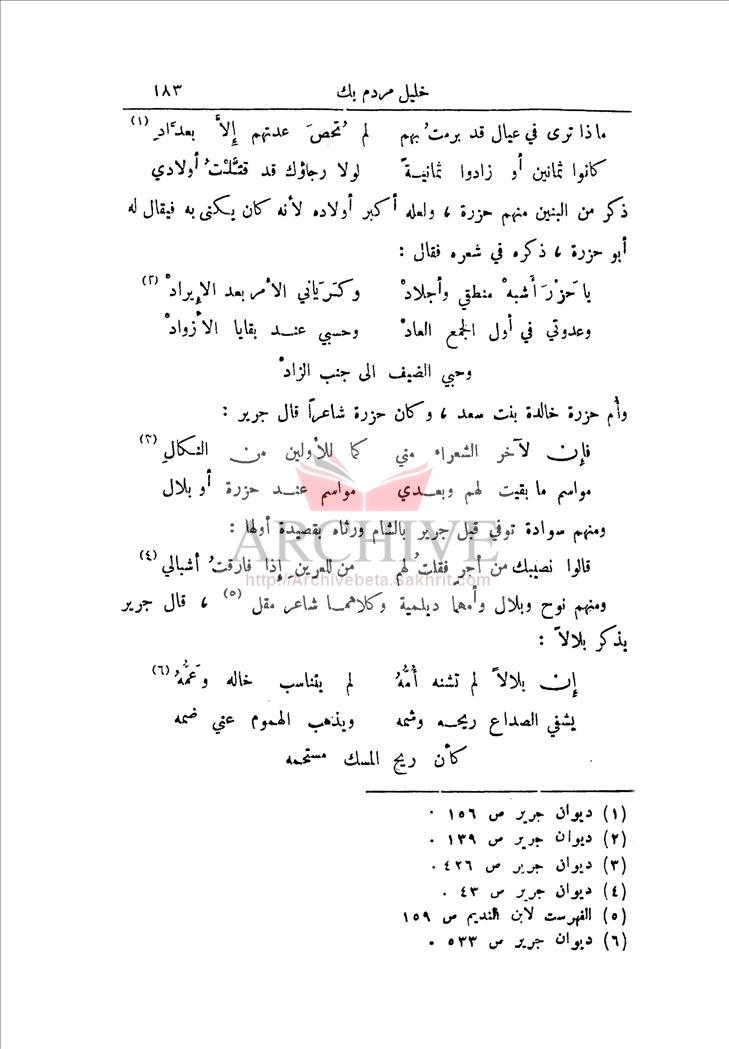 خليل مردم بك ١٨٣
ما ذا ترى في عيال قد برمتُ بهم لم تُحصَ عدتهم إلاَّ بعدَّادِ (١)
كانوا ثمانين أو زادوا ثمانيةً لولا رجاؤك قد قتَّلْتُ أولادي
ذكر من البنين منهم حزرة ، ولعله أكبر أولاده لأنه كان يكنى به فيقال له
أبو حزرة ، ذكره في شعره فقال :
يا حَزْرَ أَشبهْ منطقي وأجلادْ وكَرَّياني الأمر بعد الإيرادْ (٢)
وعدوتي في أول الجمع العادْ وحسبي عند بقايا الأزوادْ
وحبي الضيف الى جنب الزادْ
وأم حزرة خالدة بنت سعد ، وكان حزرة شاعراً قال جرير :
فإن لآخر الشعراء مني كما للأولين من النكالِ (٣)
مواسم ما بقيت لهم وبعدي مواسم عند حزرة أو بلال
ومنهم سوادة توفي قبل جرير بالشام ورثاه بقصيدة أولها :
قالوا نصيبك من أجر فقلتُ لهم من للعرين إذا فارقتُ أشبالي (٤)
ومنهم نوح وبلال وأمهما ديلمية وكلاهما شاعر مقل (٥) ، قال جرير
يذكر بلالاً :
إن بلالاً لم تشنه أُمُّهُ لم يتناسب خاله وعَمُّهُ (٦)
يشفي الصداع ريحه وشمه ويذهب الهموم عني ضمه
كأن ريح المسك مستحمه
(١) ديوان جرير ص ١٥٦ .
(٢) ديوان جرير ص ١٣٩ .
(٣) ديوان جرير ص ٤٢٦ .
(٤) ديوان جرير ص ٤٣ .
(٥) الفهرست لابن النديم ص ١٥٩
(٦) ديوان جرير ص ٥٣٣ .
ARCHIVE
http://Archivebeta.Sakhrit.com